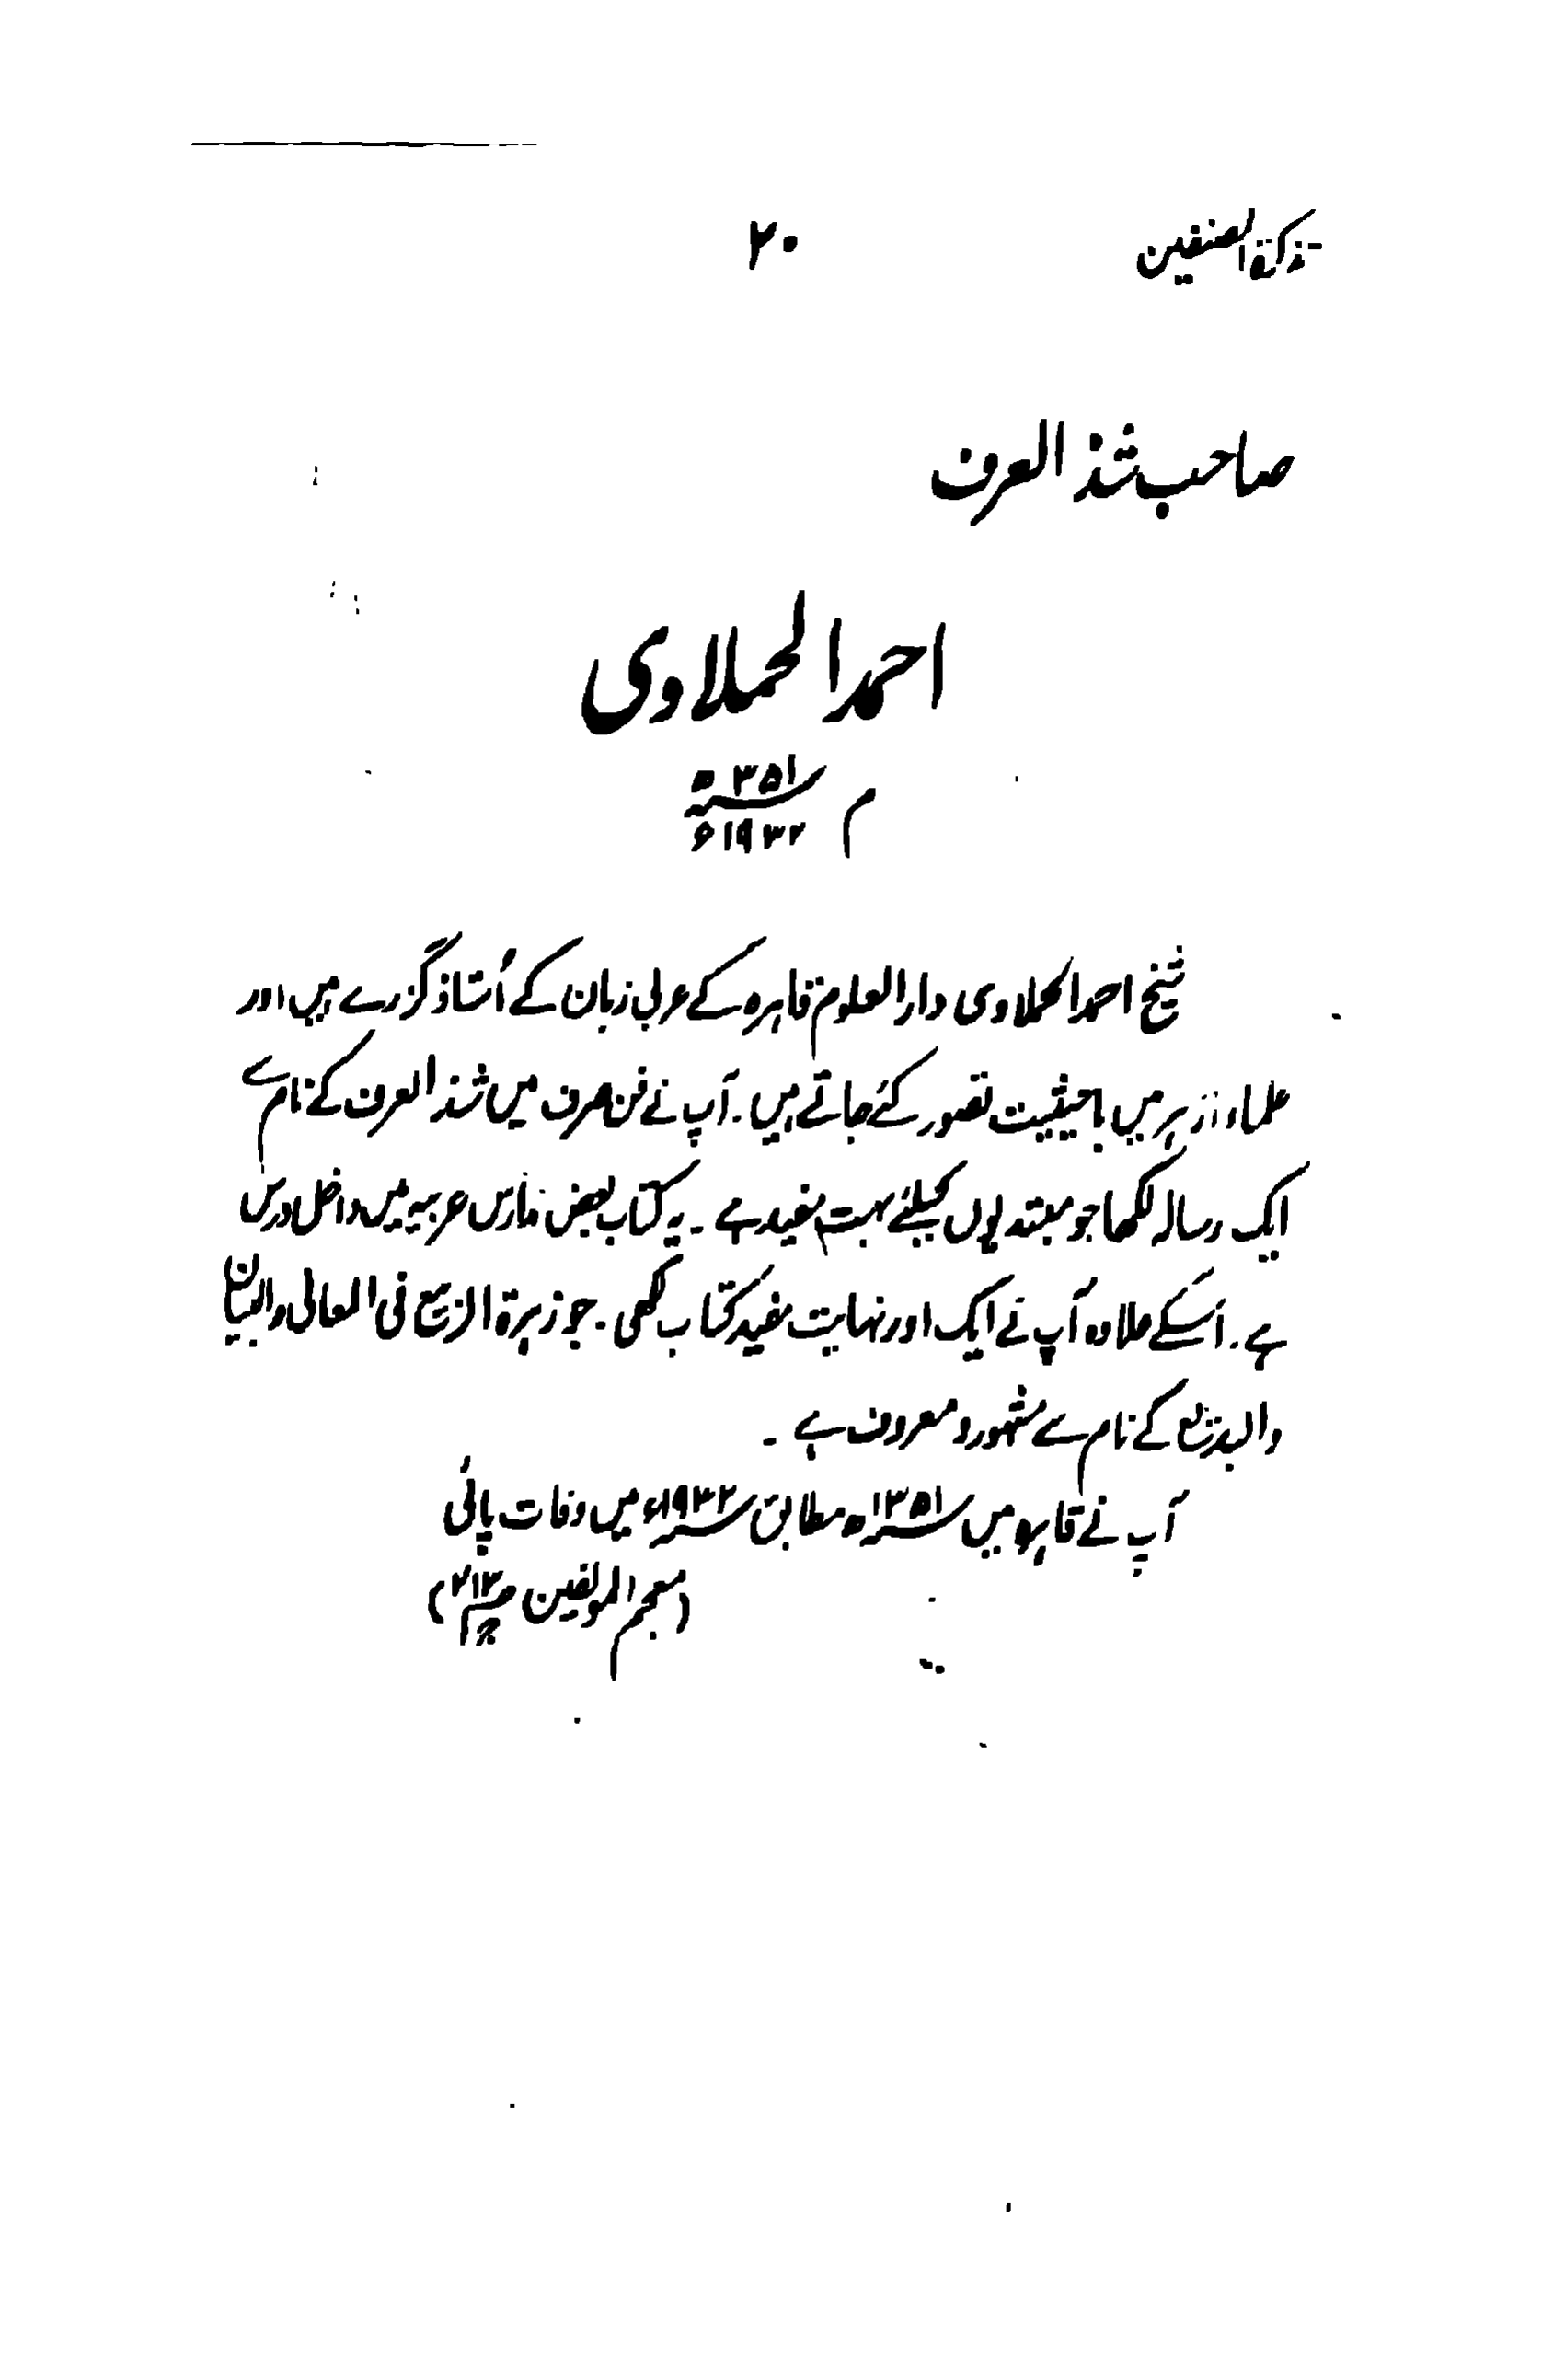 تذکرۃ المصنفین
۲۰
صاحب شذ العرف
احمد الحملاوی
م ۱۳۵۱ھ
۱۹۳۲ء
شیخ احمد الحملاوی دار العلوم قاہرہ کے عربی زبان کے اُستاذ گزرے ہیں اور
علماء ازہر میں باحیثیت تصور کئے جاتے ہیں۔ آپ نے فن صرف میں شذ العرف کے نام سے
ایک رسالہ لکھا جو مبتدیوں کیلئے بہت مفید ہے۔ یہ کتاب بعض مدارس عربیہ میں داخل درس
ہے۔ اُسکے علاوہ آپ نے ایک اور نہایت مفید کتاب لکھی۔ جو زہرۃ الربیع فی المعانی والبیان
والبدیع کے نام سے مشہور و معروف ہے۔
آپ نے قاہرہ میں ۱۳۵۱ھ مطابق ۱۹۳۲ء میں وفات پائی
(معجم المولفین ص۲۱۳)